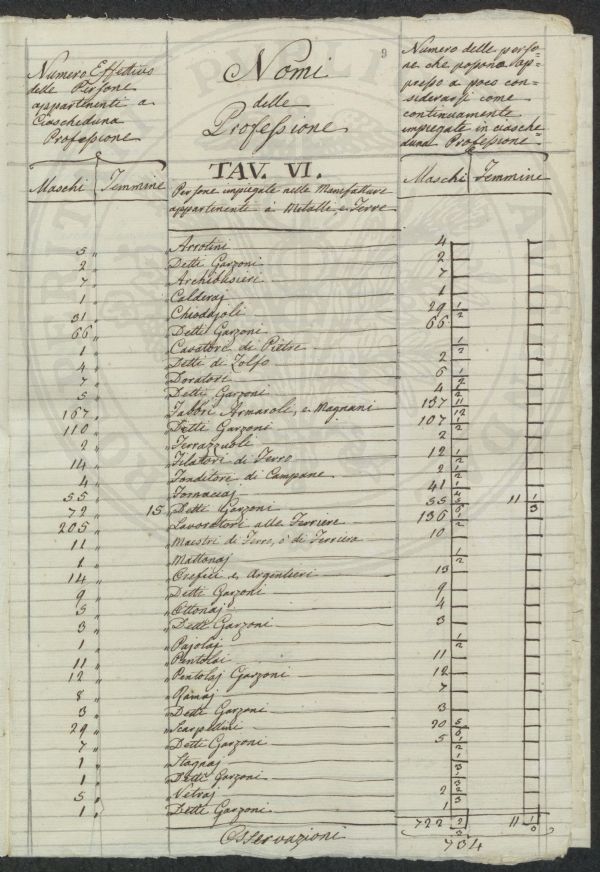 9
Numero Effettivo
delle Persone
appartenenti a
Ciascheduna
Professione
Nomi
delle
Professione
Numero delle perso-
ne che possono ap-
presso a poco con-
siderarsi come
continuamente
impiegate in ciasche
duna Professione
Maschi Femmine
TAV. VI.
Persone impiegate nelle Manifatture
appartenenti à Metalle, e Terre
Maschi Femmine
5 " " Arrotini 4
2 " " Detti Garzoni 2
7 " " Archibusieri 7
1 " " Calderaj 1
31 " " Chiodajoli 29 1/2
66 " " Detti Garzoni 66
1 " " Cavatore di Pietre 1/2
4 " " Detti di Zolfo 2
7 " " Doratori 6 1/2
5 " " Detti Garzoni 4 1/2
167 " " Fabbri Armaroli, e Magnani 137 11/12
110 " " Detti Garzoni 107 1/2
2 " " Terrazzuoli 2
14 " " Filatori di Ferro 12 1/2
4 " " Fonditore di Campane 2 1/2
55 " " Fornaciaj 41 1/4
72 " 15 " Detti Garzoni 55 5/6 11 1/3
205 " " Lavoratori alle Ferriere 136 1/2
11 " " Maestri di Ferro, o di Ferriera 10
1 " " Mattonaj 1/2
14 " " Orefici e Argentieri 13
9 " " Detti Garzoni 9
5 " " Ottonaj 4
3 " " Detti Garzoni 3
1 " " Pajolaj 1/2
11 " " Pentolai 11
12 " " Pentolaj Garzoni 12
8 " " Ramaj 7
3 " " Detti Garzoni 3
29 " " Scarpellini 20 5/6
7 " " Detti Garzoni 5 1/2
1 " " Stagnaj 1/3
1 " " Detti Garzoni 1/3
5 " " Vetraj 2 2/3
1 " " Detti Garzoni 1
722 2/3 11 1/3
Osservazioni
734